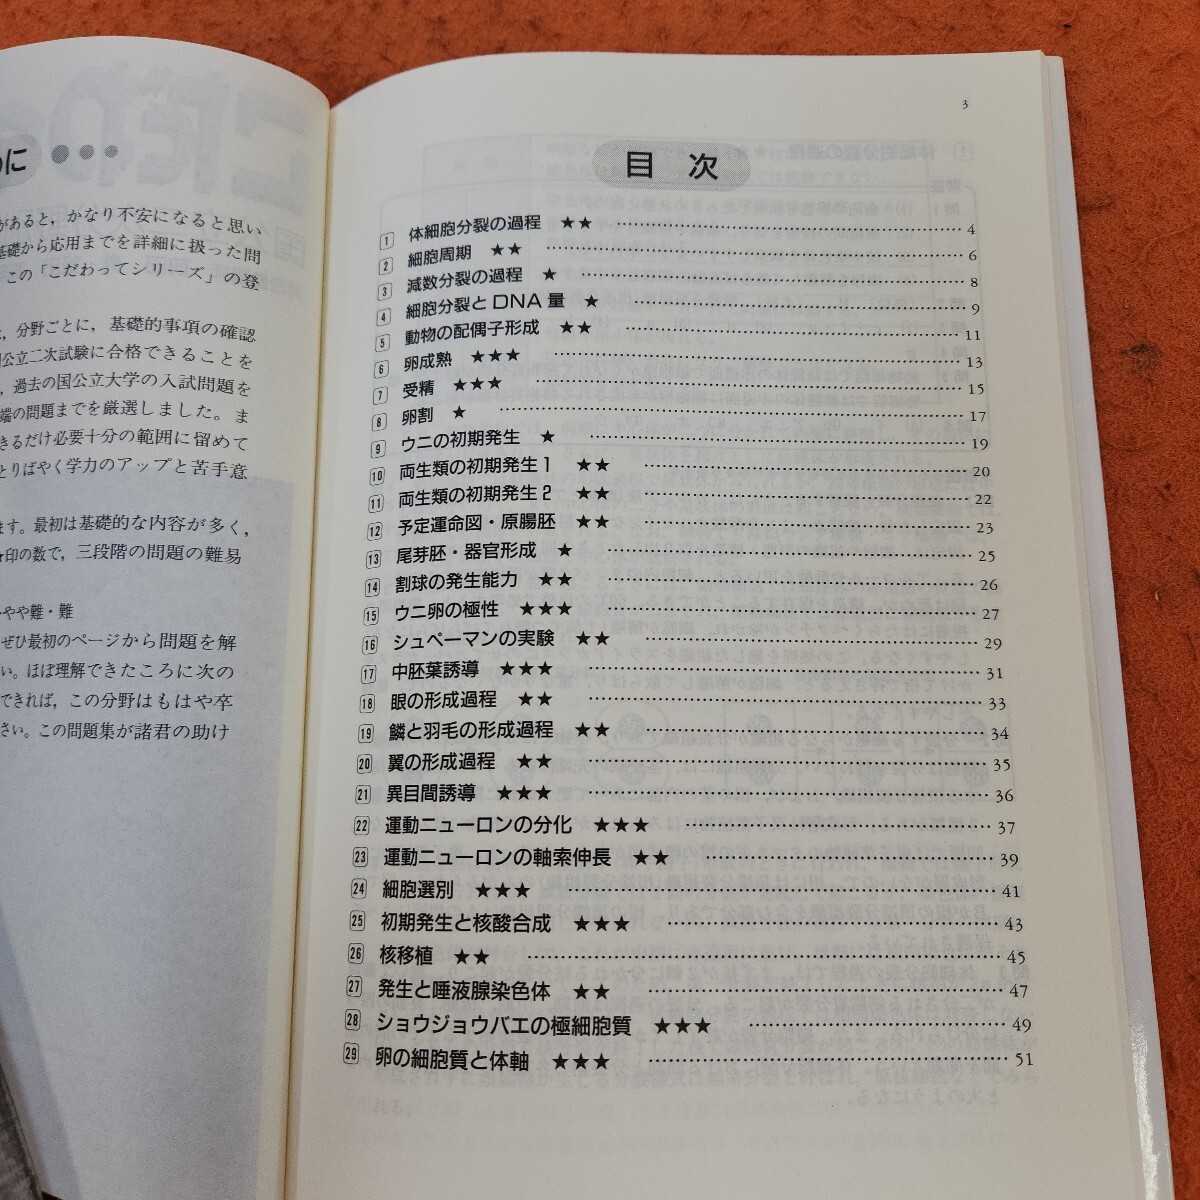 めに ●●●
があると，かなり不安になると思い
基礎から応用までを詳細に扱った問
この「こだわってシリーズ」の登
，分野ごとに，基礎的事項の確認
公立二次試験に合格できることを
，過去の国公立大学の入試問題を
端の問題までを厳選しました。ま
きるだけ必要十分の範囲に留めて
とりばやく学力のアップと苦手意
ます。最初は基礎的な内容が多く，
★印の数で，三段階の問題の難易
やや難・難
ぜひ最初のページから問題を解
い。ほぼ理解できたころに次の
できれば，この分野はもはや卒
さい。この問題集が諸君の助け
3
目 次
1 体細胞分裂の過程 ★★ 4
2 細胞周期 ★★ 6
3 減数分裂の過程 ★ 8
4 細胞分裂とDNA量 ★ 9
5 動物の配偶子形成 ★★ 11
6 卵成熟 ★★★ 13
7 受精 ★★★ 15
8 卵割 ★ 17
9 ウニの初期発生 ★ 19
10 両生類の初期発生1 ★★ 20
11 両生類の初期発生2 ★★ 22
12 予定運命図・原腸胚 ★★ 23
13 尾芽胚・器官形成 ★ 25
14 割球の発生能力 ★★ 26
15 ウニ卵の極性 ★★★ 27
16 シュペーマンの実験 ★★ 29
17 中胚葉誘導 ★★★ 31
18 眼の形成過程 ★★ 33
19 鱗と羽毛の形成過程 ★★ 34
20 翼の形成過程 ★★ 35
21 異目間誘導 ★★★ 36
22 運動ニューロンの分化 ★★★ 37
23 運動ニューロンの軸索伸長 ★★ 39
24 細胞選別 ★★★ 41
25 初期発生と核酸合成 ★★★ 43
26 核移植 ★★ 45
27 発生と唾液腺染色体 ★★ 47
28 ショウジョウバエの極細胞質 ★★★ 49
29 卵の細胞質と体軸 ★★★ 51